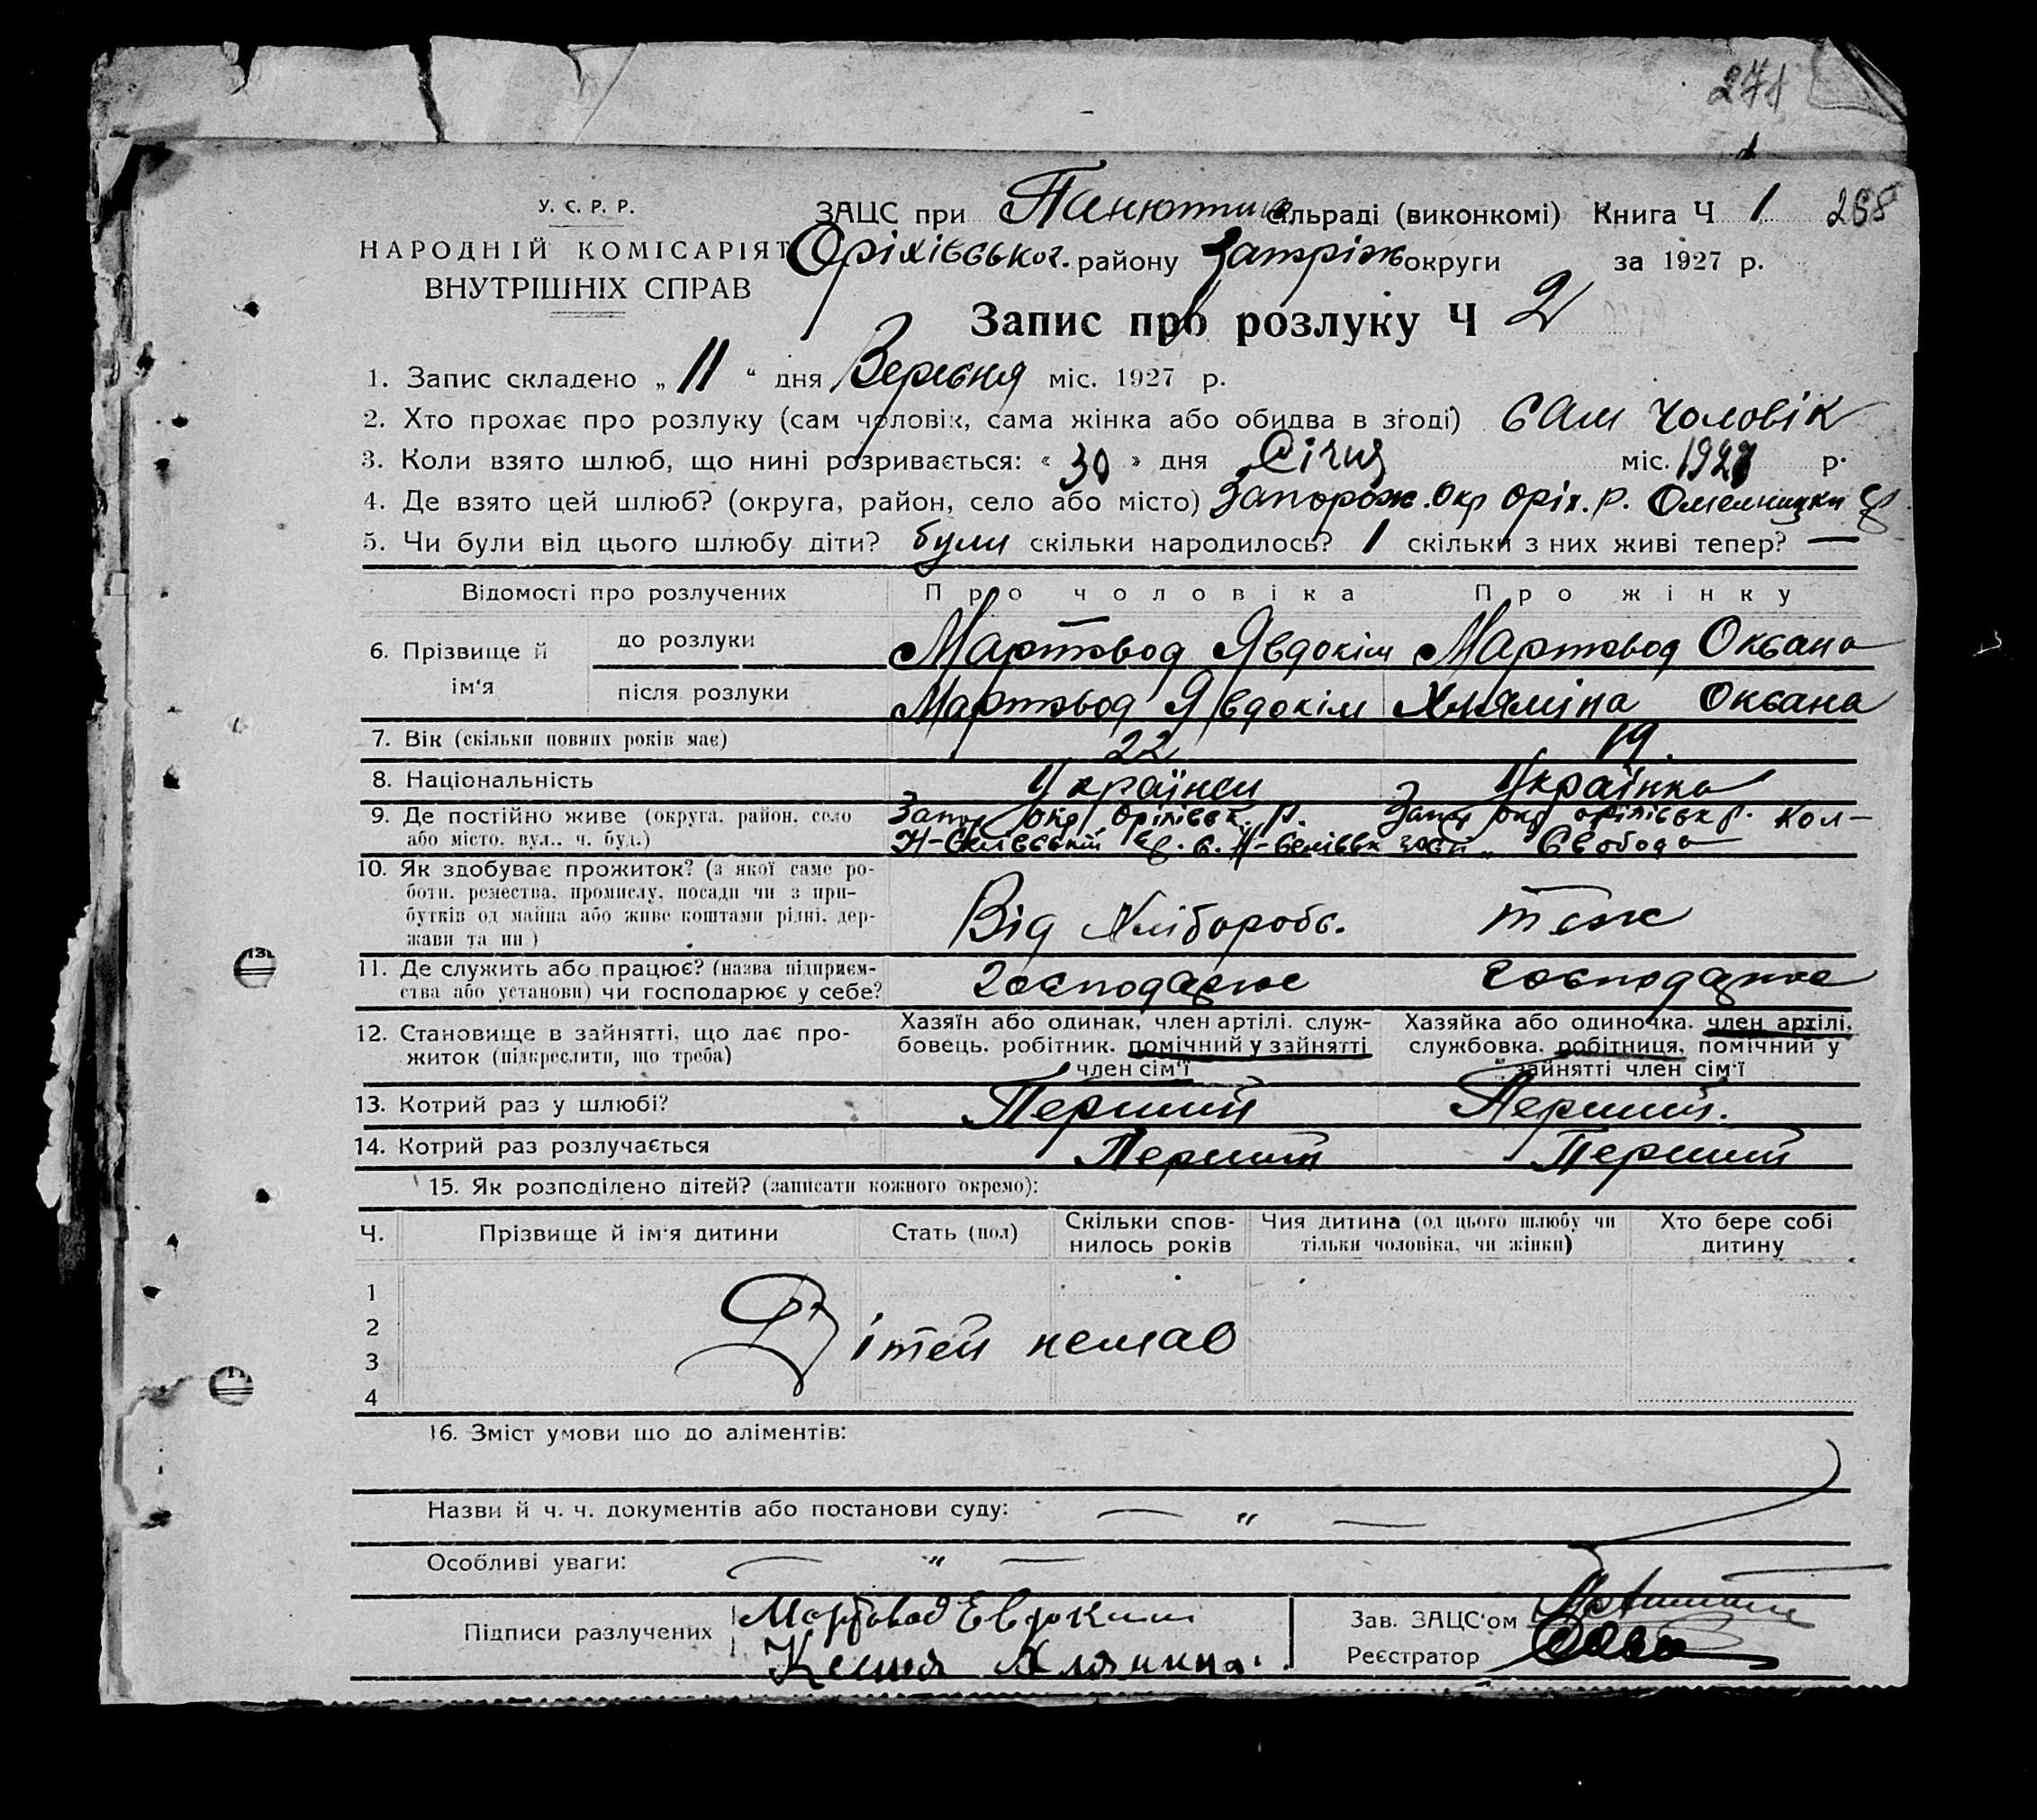 271
У. С. Р. Р.
НАРОДНІЙ КОМІСАРІЯТ
ВНУТРІШНІХ СПРАВ
ЗАЦС при Панютин сільраді (виконкомі) Книга Ч 1 288
Оріхівськог. району Запоріж округи за 1927 р.
Запис про розлуку Ч 2
1. Запис складено „ 11 “ дня Вересня міс. 1927 р.
2. Хто прохає про розлуку (сам чоловік, сама жінка або обидва в згоді) сам чоловік
3. Коли взято шлюб, що нині розривається: « 30 » дня Січня міс. 1927 р.
4. Де взято цей шлюб? (округа, район, село або місто) Запорож. Окр Оріх. р. Омельницки
5. Чи були від цього шлюбу діти? були скільки народилось? 1 скільки з них живі тепер? —
Відомості про розлучених Про чоловіка Про жінку
6. Прізвище й ім'я до розлуки Мартовод Явдокім Мартовод Оксана
після розлуки Мартовод Явдокім Хиляміна Оксана
7. Вік (скільки повних років має) 22 19.
8. Національність Українси Українка
9. Де постійно живе (округа, район, село Запор Окр Оріхівськ. р. Запор Окр Оріхівськ р. Кол-
або місто, вул., ч. буд.) с. Свобода
10. Як здобуває прожиток? (з якої саме ро-
боти, ремества, промислу, посади чи з при-
бутків од майна або живе коштами рідні, дер-
жави та ин) Від Хлібороbс. тож
11. Де служить або працює? (назва підприєм-
ства або установи) чи господарює у себе? Господарює Господарює
12. Становище в зайнятті, що дає про-
житок (підкреслити, що треба)
Хазяїн або одинак, член артілі, служ-
бовець, робітник, помічний у зайнятті
член сім'ї
Хазяйка або одиночка, член артілі,
службовка, робітниця, помічний у
зайнятті член сім'ї
13. Котрий раз у шлюбі? Перший Перший.
14. Котрий раз розлучається Перший Перший
15. Як розподілено дітей? (записати кожного окремо):
Ч. Прізвище й ім'я дитини Стать (пол) Скільки спов-
нилось років Чия дитина (од цього шлюбу чи
тільки чоловіка, чи жінки) Хто бере собі
дитину
1
2
Дітей немає
3
4
16. Зміст умови що до аліментів:
Назви й ч. ч. документів або постанови суду: — „ —
Особливі уваги: — „ —
Підписи разлучених Мартовод Евдоким
Ксеня
Зав. ЗАЦС'ом
Реєстратор